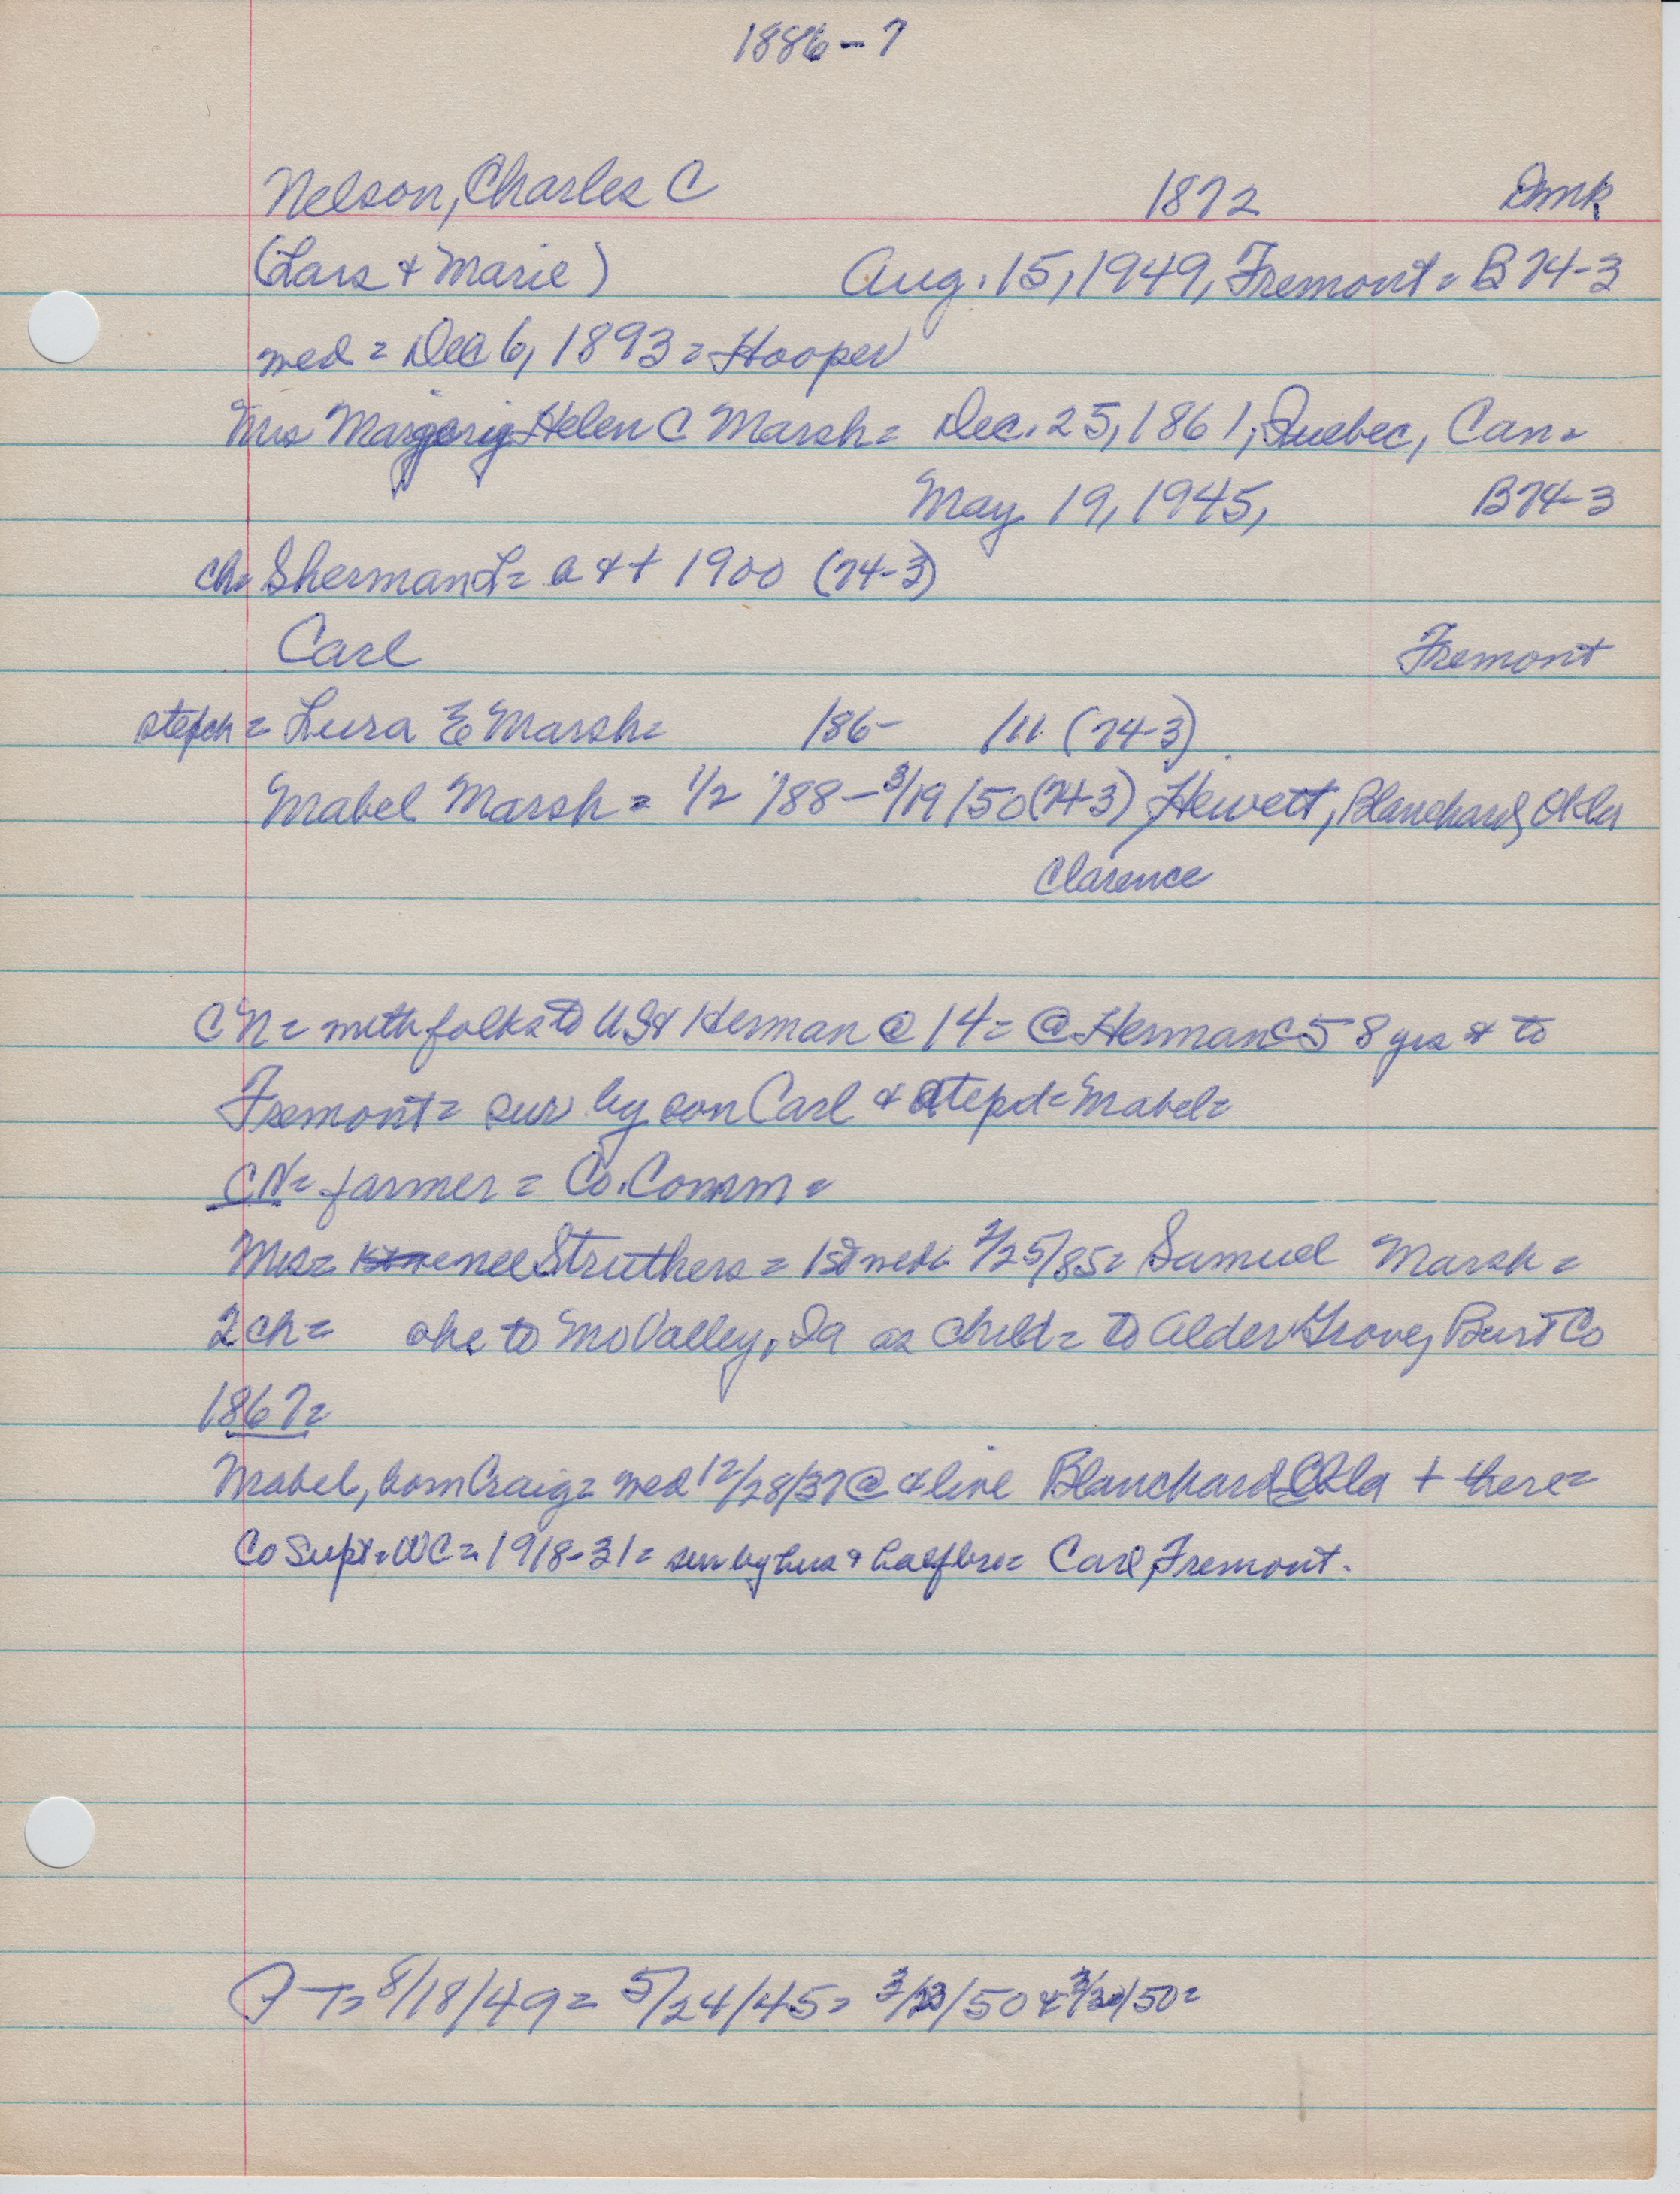 1886-7
Nelson, Charles C 1872 Dmk
(Lars + Marie) Aug. 15, 1949, Fremont = B 74-3
med = Dec 6, 1893 = Hooper
Mrs Margorig Helen C Marsh = Dec. 25, 1861, Quebec, Can =
May 19, 1945, B74-3
ch = Sherman L = a & t 1900 (74-3)
Carl Fremont
stepch = Lura E Marsh = 186- 111 (74-3)
Mabel Marsh = 1/2 '88 - 3/19/50 (74-3) Hewett, Blanchard, Okla
Clarence
CN = with folks to US & Herman @ 14 = @ Herman 58 yrs & to
Fremont = sur by son Carl & stepd = Mabel =
CN = farmer = Co. Comm =
Mrs = nee Struthers = 1st med = 2/25/85 = Samuel Marsh =
2 ch = she to Mo Valley, Ia as child = to Alder Grove, Burt Co
1867 =
Mabel, born Craig = med 12/28/37 @ & live Blanchard Okla + there =
Co Supt = WC = 1918-31 = sur by hus & half bro = Carl, Fremont.
T = 8/18/49 = 5/24/45 = 3/23/50 & 3/30/50 =